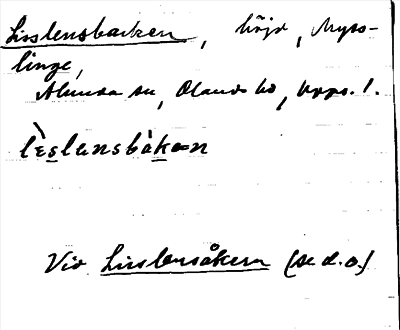 Lisslensbacken, höjd, Myss-
linge,
Alunda sn, Olands hd, Upps. l.
lèslensbàkan
Vid Lisslensåkern (se d.o.)